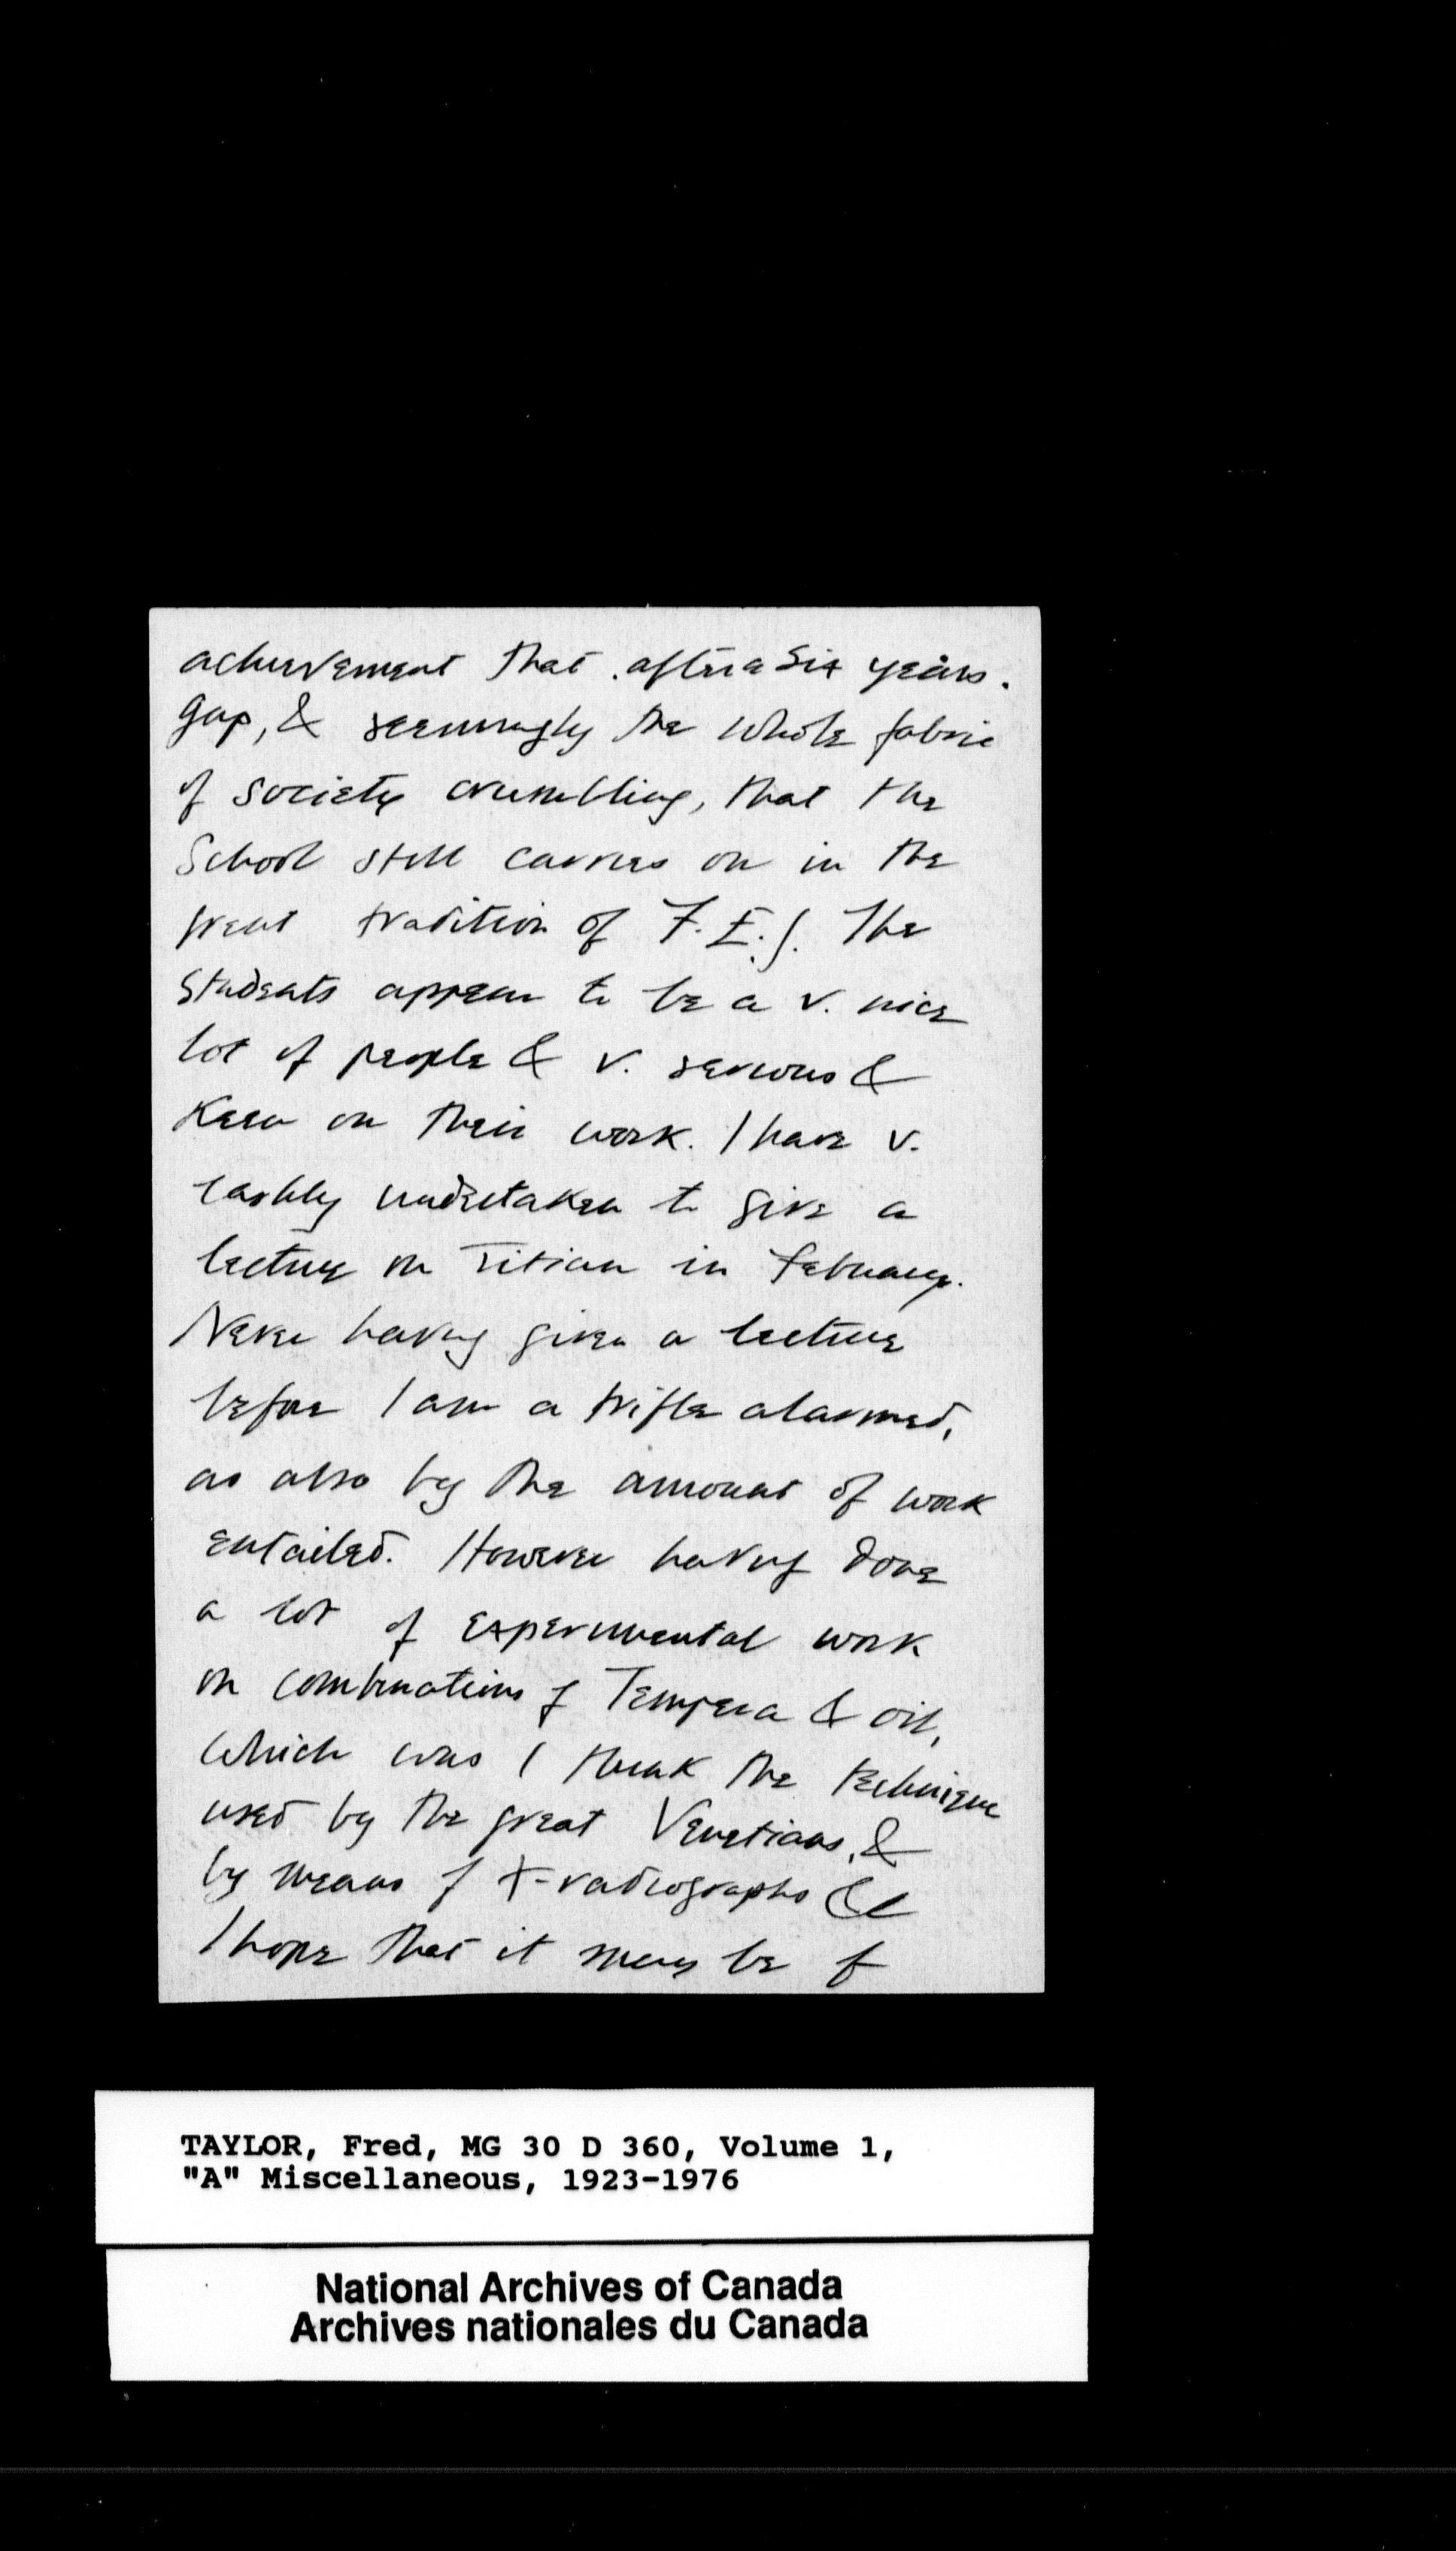 achievement that after a six years.
gap, & seemingly the whole fabric
of society crumbling, that the
School still carries on in the
great tradition of F.E.J. The
students appear to be a v. nice
lot of people & v. serious &
keen on their work. I have v.
rashly undertaken to give a
lecture on Titian in February.
Never having given a lecture
before I am a trifle alarmed,
as also by the amount of work
entailed. However having done
a lot of experimental work
on combinations of Tempera & oil,
which was I think the technique
used by the great Venetians, &
by means of X-radiographs &c
I hope that it may be of
TAYLOR, Fred, MG 30 D 360, Volume 1,
"A" Miscellaneous, 1923-1976
National Archives of Canada
Archives nationales du Canada